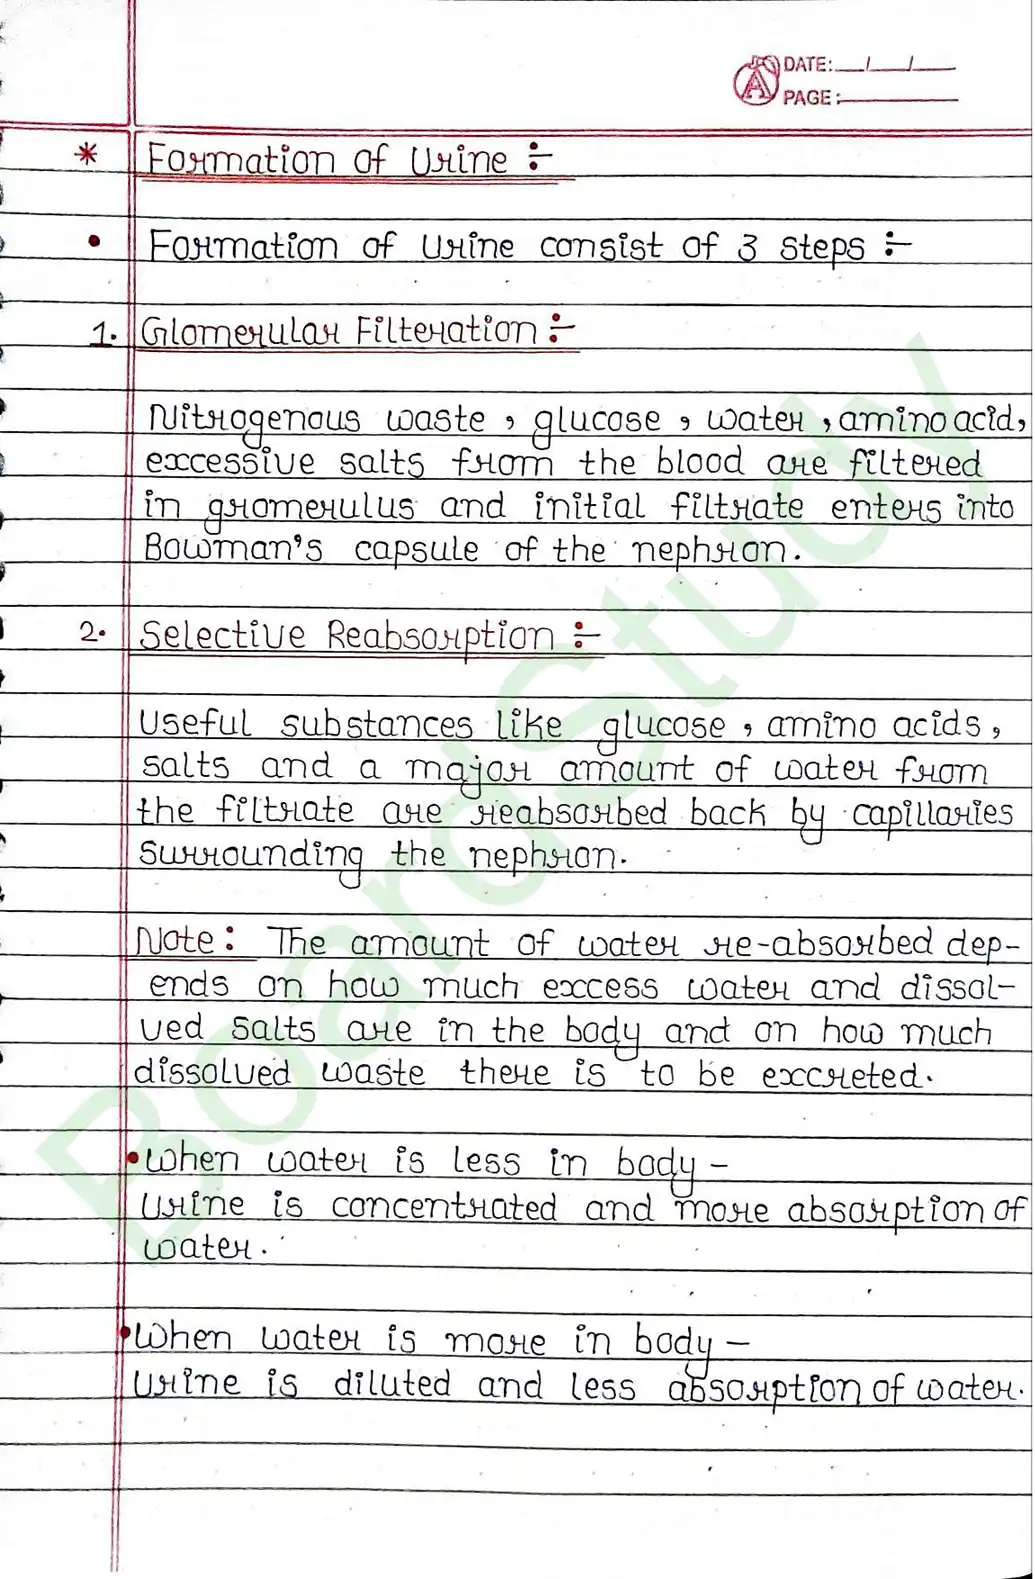 DATE: __/__/__
PAGE: ______
* Formation of Urine :-
• Formation of Urine consist of 3 steps :-
1. Glomerular Filteration :-
Nitrogenous waste, glucose, water, amino acid,
excessive salts from the blood are filtered
in gromerulus and initial filtrate enters into
Bowman's capsule of the nephron.
2. Selective Reabsorption :-
Useful substances like glucose, amino acids,
salts and a major amount of water from
the filtrate are reabsorbed back by capillaries
surrounding the nephron.
Note: The amount of water re-absorbed dep-
ends on how much excess water and dissol-
ved salts are in the body and on how much
dissolved waste there is to be excreted.
• When water is less in body -
Urine is concentrated and more absorption of
water.
• When water is more in body -
Urine is diluted and less absorption of water.
BoardStudy